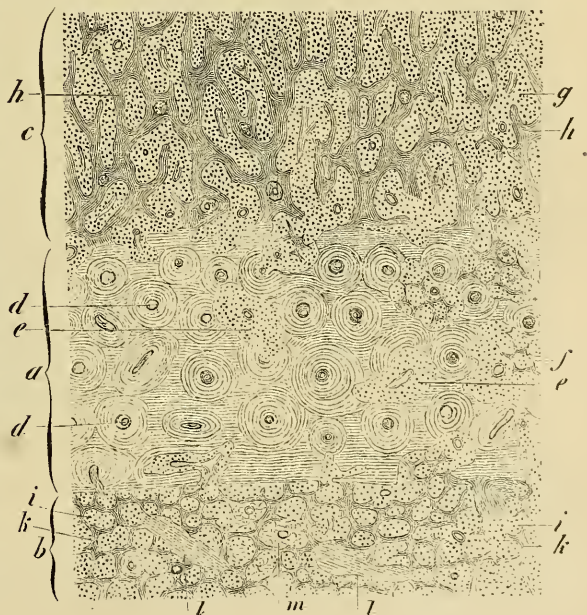 h
c
g
h
d
e
a
f
e
d
i
k
b
i
k
l
m
l